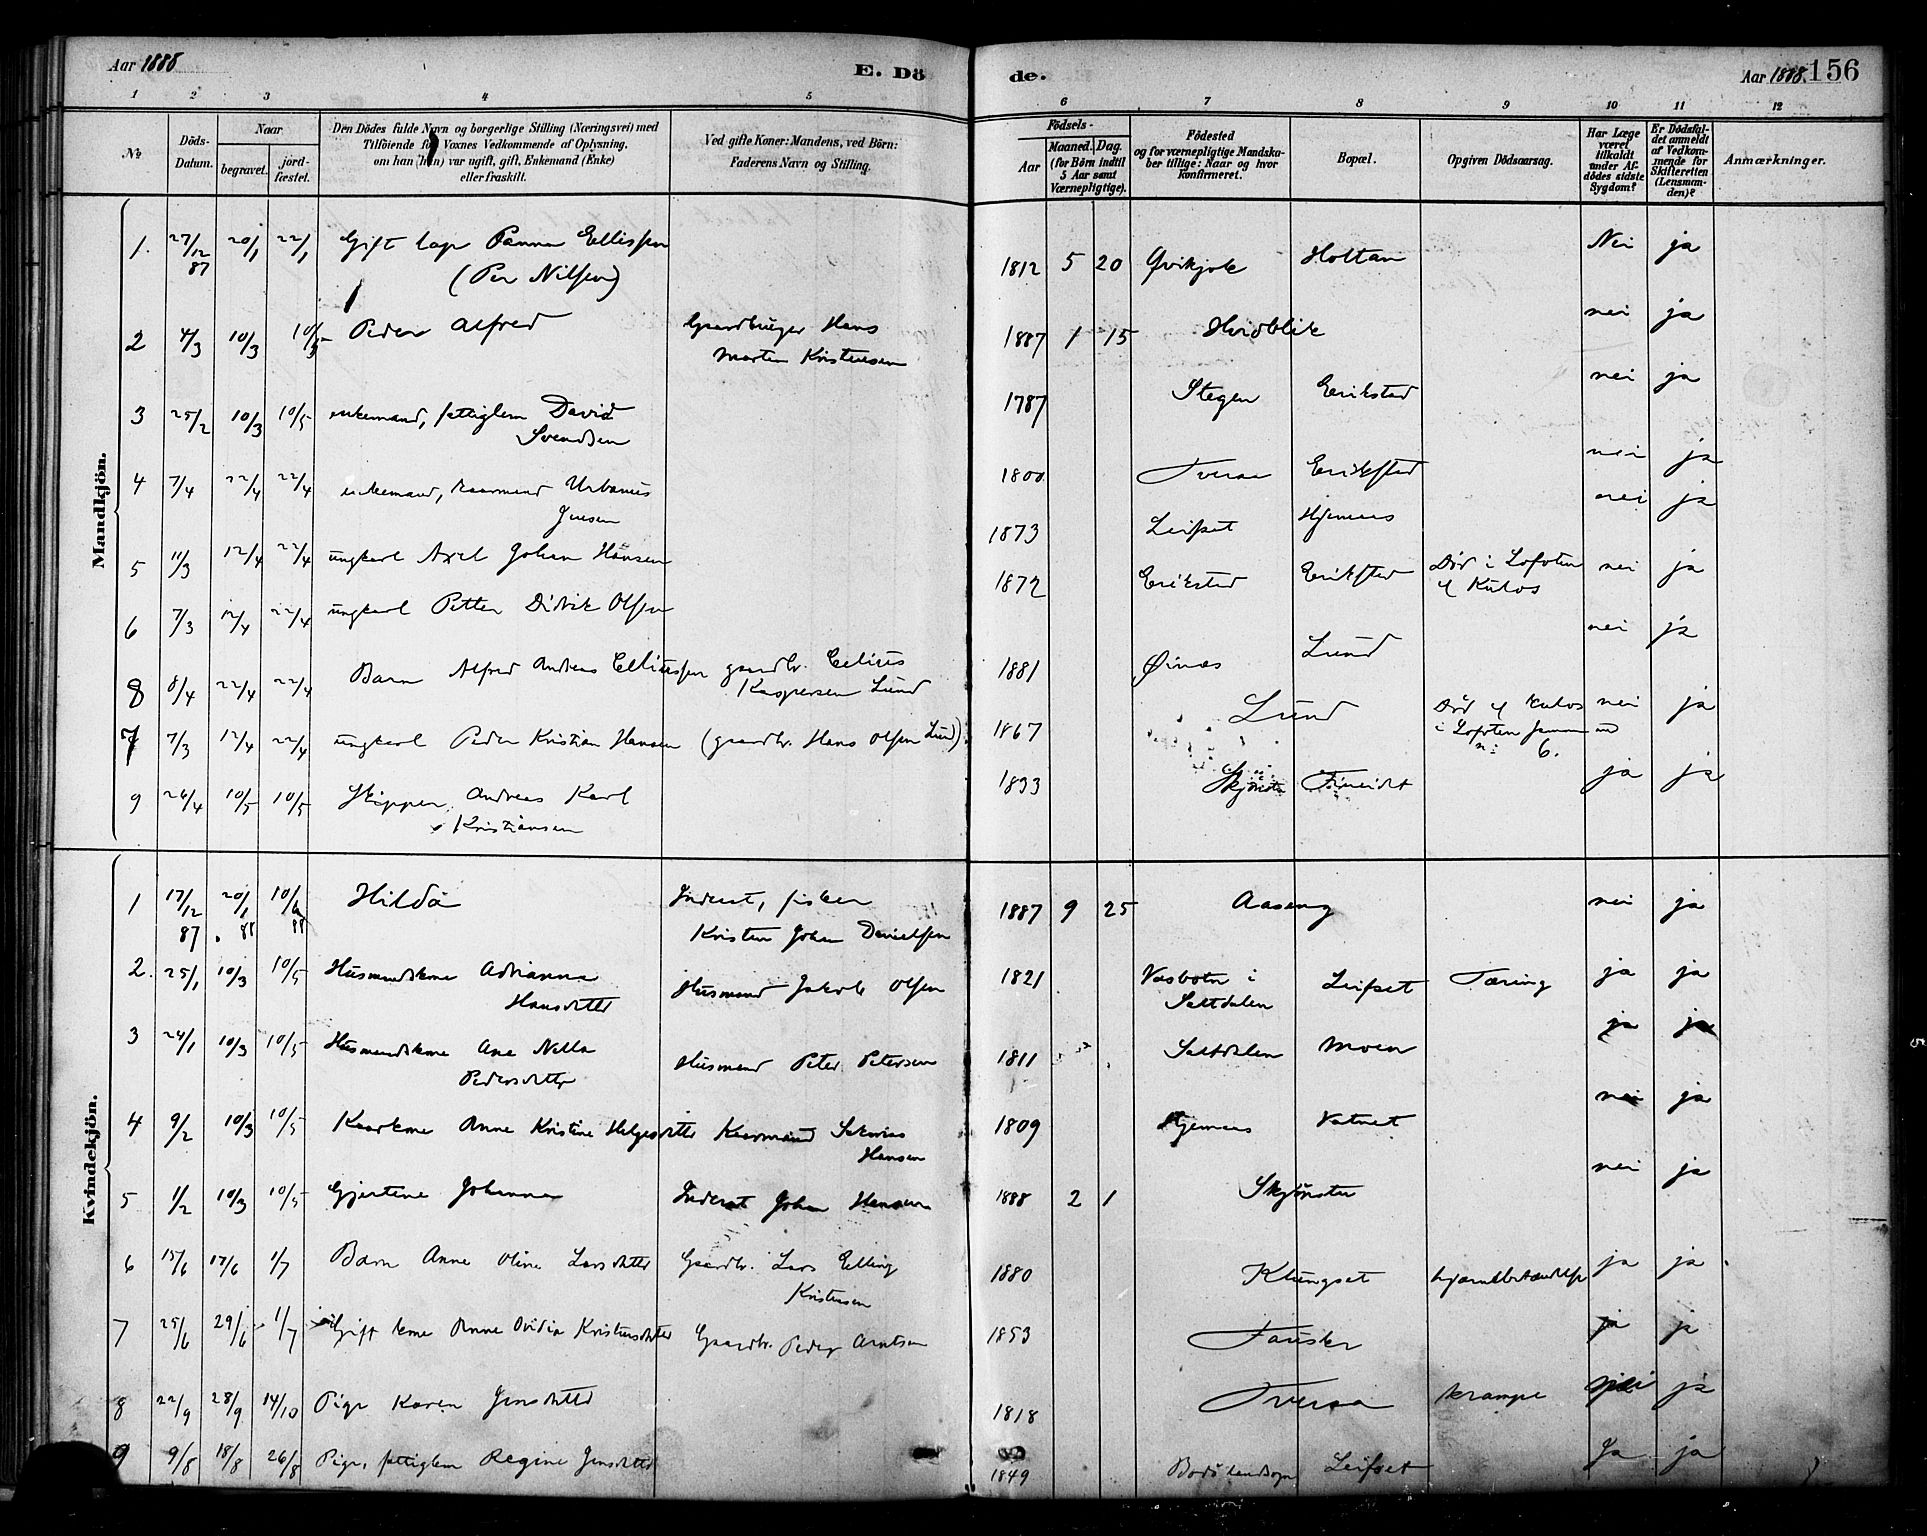 Aar 1888
E. Dö
de.
Aar 1888.
156
1 2 3 4 5 6 7 8 9 10 11 12
No
Döds-Datum.
Naar
begravet.
jord-fæstet.
Den Dödes fulde Navn og borgerlige Stilling (Næringsvei) med
Tilföiende for Voxnes Vedkommende af Oplysning,
om han (hun) var ugift, gift, Enkemand (Enke)
eller fraskilt.
Ved gifte Koner: Mandens, ved Börn:
Faderens Navn og Stilling.
Födsels-
Aar
Maaned. Dag.
(for Börn indtil
5 Aar samt
Værnepligtige).
Födested
og for værnepligtige Mandska-
ber tillige: Naar og hvor
Konfirmeret.
Bopæl.
Opgiven Dödsaarsag.
Har Læge
været
tilkaldt
under Af-
dödes sidste
Sygdom?
Er Dödsfal-
det anmeldt
af Vedkom-
mende for
Skifteretten
(Lensman-
den)?
Anmærkninger.
Mandkjön.
1. 27/12 87 20/1 22/1 Gift lap Ellissen 1812 5 20 Holtan Nei ja
(Per Nilsen)
2 4/3 10/3 10/5 Peder Alfred Gaardbruger Hans 1887 1 15 Hvidblik nei ja
Morten Kristensen
3 25/2 10/3 10/5 enkemand, fattiglem David 1787 Stegen Erikstad nei ja
Svendsen
4 7/4 22/4 22/4 enkemand, kaarmand Urbanus 1800 Tveraa Erikstad nei ja
Jensen
5 11/3 12/4 22/4 ungkarl Axel Johan Hansen 1873 Leifset Hjemaas nei ja
6 7/3 12/4 22/4 ungkarl Petter Didrik Olsen 1872 Erikstad Erikstad Död i Lofoten nei ja
8 8/4 22/4 22/4 Barn Alfred Andreas Elliussen gaardbr. Eelius 1881 Øinæs Lund nei ja
Kaspersen Lund
7 7/3 12/4 22/4 ungkarl Peder Kristian Hansen (gaardbr. Hans Olsen Lund) 1867 Lund nei ja
i Lofoten
6.
9 26/4 10/5 10/5 Skipper Andreas Karl 1833 Skjönsta Fineidet ja ja
Kristiansen
Kvindekjön.
1 17/12 87 20/1 88 10/6 88 Hilda Inderst, fisker 1887 9 25 Aaseng nei ja
Kristen Johan Danielsen
2. 25/1 10/3 10/5 Husmandskone Adrianna Husmand Jakob Olsen 1821 Vasbotn i Leifset Tæring ja ja
Hansdatter Saltdalen
3 24/1 10/3 10/5 Husmandskone Ane Nilla Husmand Peter Petersen 1811 Saltdalen Moen ja ja
Pedersdatter
4 9/2 10/3 10/5 Kaarkone Anne Kristine Helgesdatter Kaarmand Sakarias 1809 Hjemaas Vatnet nei ja
Hansen
5 1/2 10/3 10/5 Gjertine Johanna Inderst Johan Hansen 1888 2 1 Skjönsta nei ja
6 15/6 17/6 1/7 Barn Anne Oline Larsdatter Gaardbr. Lars Elling 1880 Klungset hjernebetændelse ja ja
Kristensen
7 25/6 29/6 1/7 Gift kone Anne Ovidia Kristensdatter Gaardbr. Peder Arntsen 1853 Fauske ja ja
8 22/9 28/9 14/10 Pige Karen Jensdatter 1818 Tveraa krampe nei ja
9 9/8 18/8 26/8 Pige, fattiglem Regine Jensdatter 1849 Bodö landsogn Leifset Ja ja
5